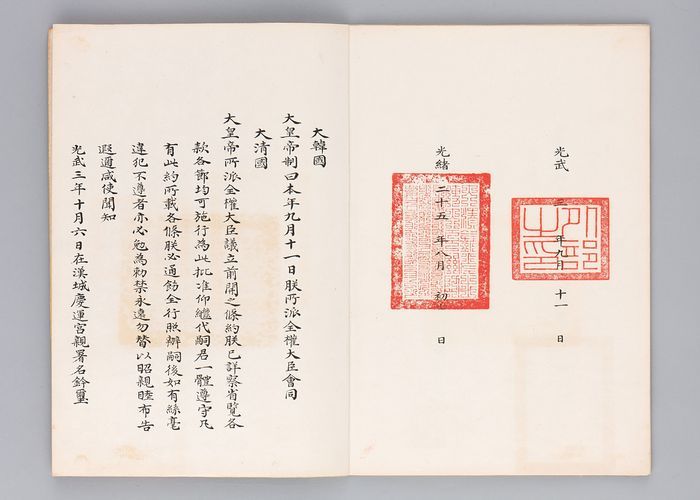 光武 三 年九月 十一 日
外部之印
光緒 二十五 年八月 初 日
大韓國
大皇帝制曰本年九月十一日朕所派全權大臣會同
大清國
大皇帝所派全權大臣議立前開之條約朕已詳察省覽各
款各節均可施行為此批准仰繼代嗣君一體遵守凡
有此約所載各條朕必通飭全行照辦嗣後如有絲毫
違犯不遵者亦必勉為勅禁永遠勿替以昭親睦布告
遐邇咸使聞知
光武三年十月六日在漢城慶運宮親署名鈐璽